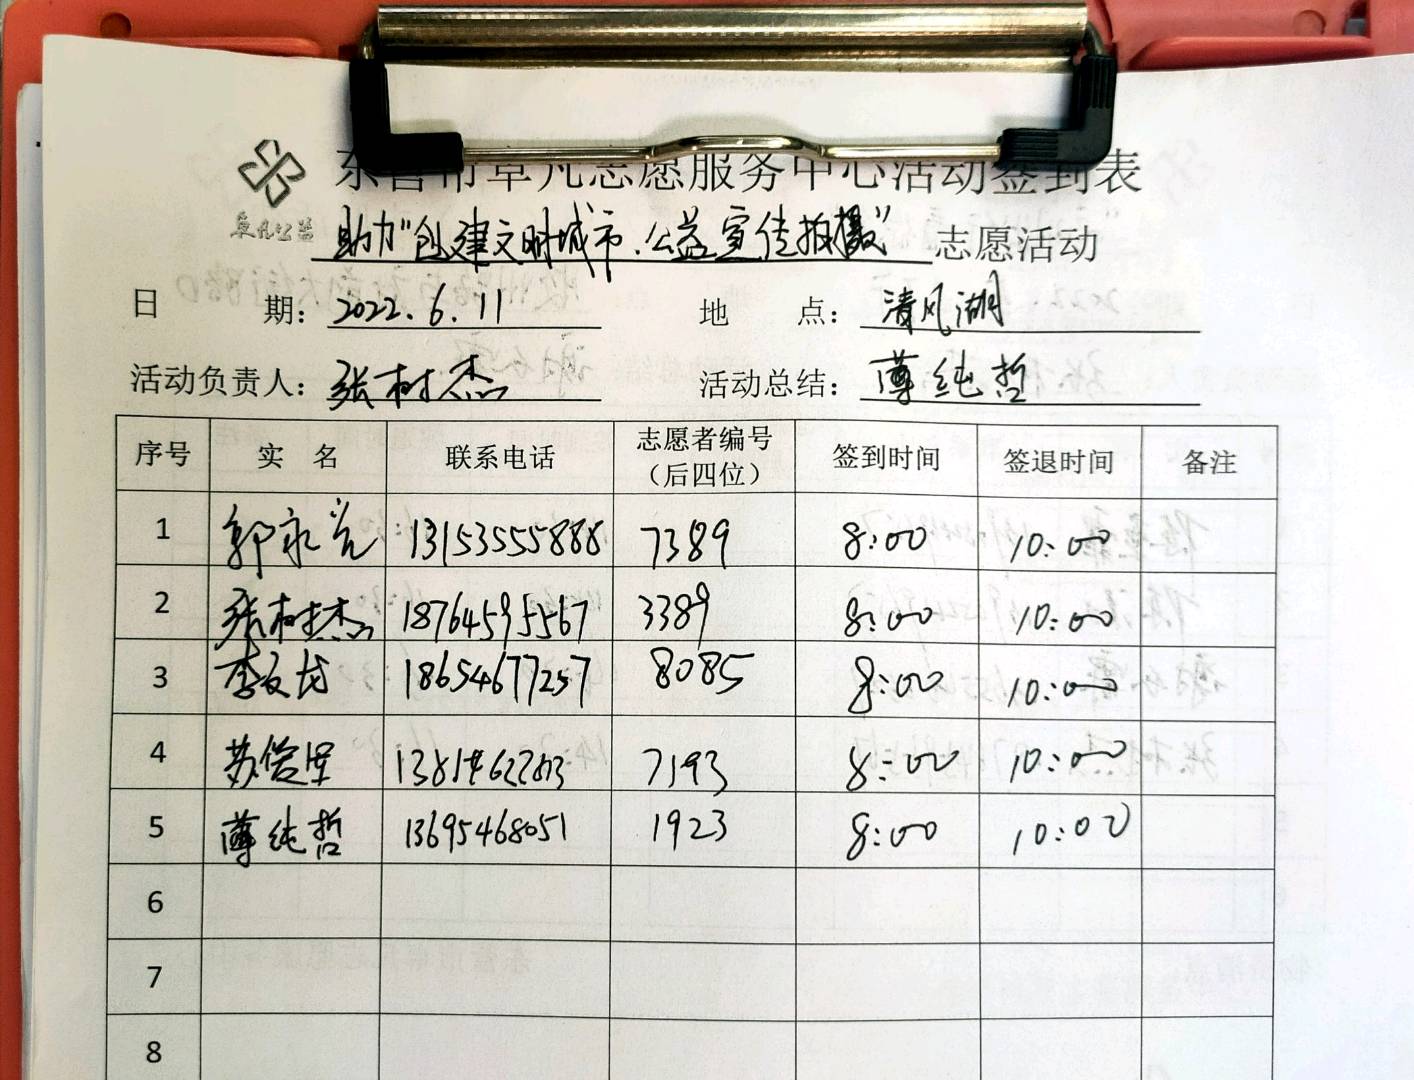 东营市草凡志愿服务中心活动签到表
草凡公益
助力“创建文明城市、公益宣传拍摄” 志愿活动
日 期: 2022.6.11 地 点: 清风湖
活动负责人: 张树杰 活动总结: 薄纯哲
序号 实 名 联系电话 志愿者编号（后四位） 签到时间 签退时间 备注
1 郭永光 13153555888 7389 8:00 10:00
2 张树杰 18764595567 3389 8:00 10:00
3 李文龙 18654677257 8085 8:00 10:00
4 苏俊 7193 8:00 10:00
5 薄纯哲 13695468051 1923 8:00 10:00
6
7
8